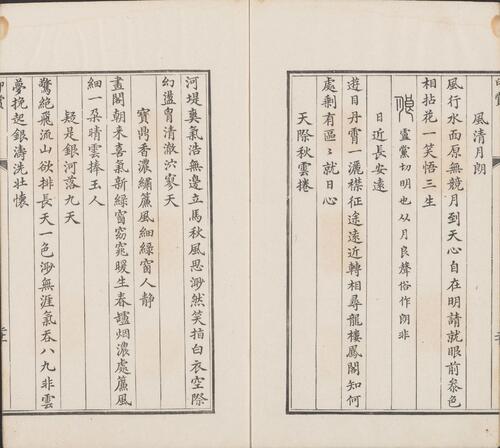 風清月朗
風行水面原無競月到天心自在明請就眼前叅色
相拈花一笑悟三生
盧黨切明也从月良聲俗作朗非
日近長安遠
遊目丹霄一灑襟征途遠近轉相尋龍樓鳳閣知何
處剩有區〻就日心
天際秋雲捲
河堤爽氣浩無邊立馬秋風思渺然笑拍白衣空際
幻盪胷清澈泬寥天
寶鼎香濃繡簾風細綠窗人靜
畫閣朝来喜氣新綠窗窈窕暖生春爐烟濃處簾風
細一朵晴雲捧玉人
疑是銀河落九天
驚絕飛流山欲排長天一色渺無涯氣吞八九非雲
夢挽起銀濤洗壯懷